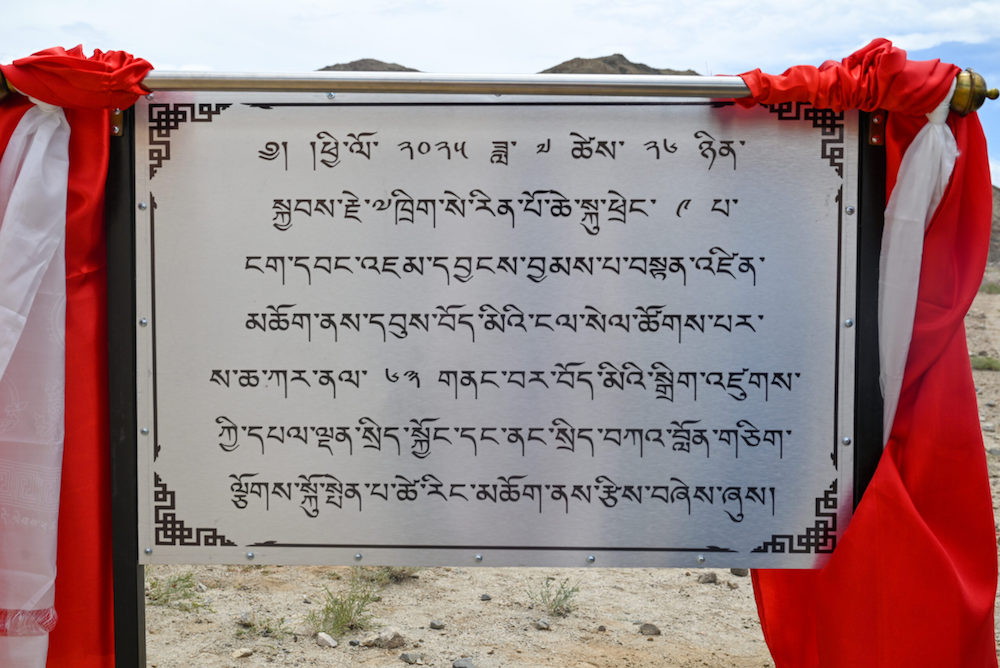 ༄། །ཕྱི་ལོ་ ༢༠༢༥ ཟླ་ ༧ ཚེས་ ༢༦ ཉིན་
སྐྱབས་རྗེ་༧ཁྲིག་སེ་རིན་པོ་ཆེ་སྐུ་ཕྲེང་ ༩ པ་
ངག་དབང་འཇམ་དབྱངས་བྱམས་པ་བསྟན་འཛིན་
མཆོག་ནས་དབུས་བོད་མིའི་ངལ་སེལ་ཚོགས་པར་
ས་ཆ་ཀར་ནལ་ ༦༣ གནང་བར་བོད་མིའི་སྒྲིག་འཛུགས་
ཀྱི་དཔལ་ལྡན་སྲིད་སྐྱོང་དང་ནང་སྲིད་བཀའ་བློན་གཅིག་
ལྕོགས་སྐུ་སྤེན་པ་ཚེ་རིང་མཆོག་ནས་རྩིས་བཞེས་ཞུས།